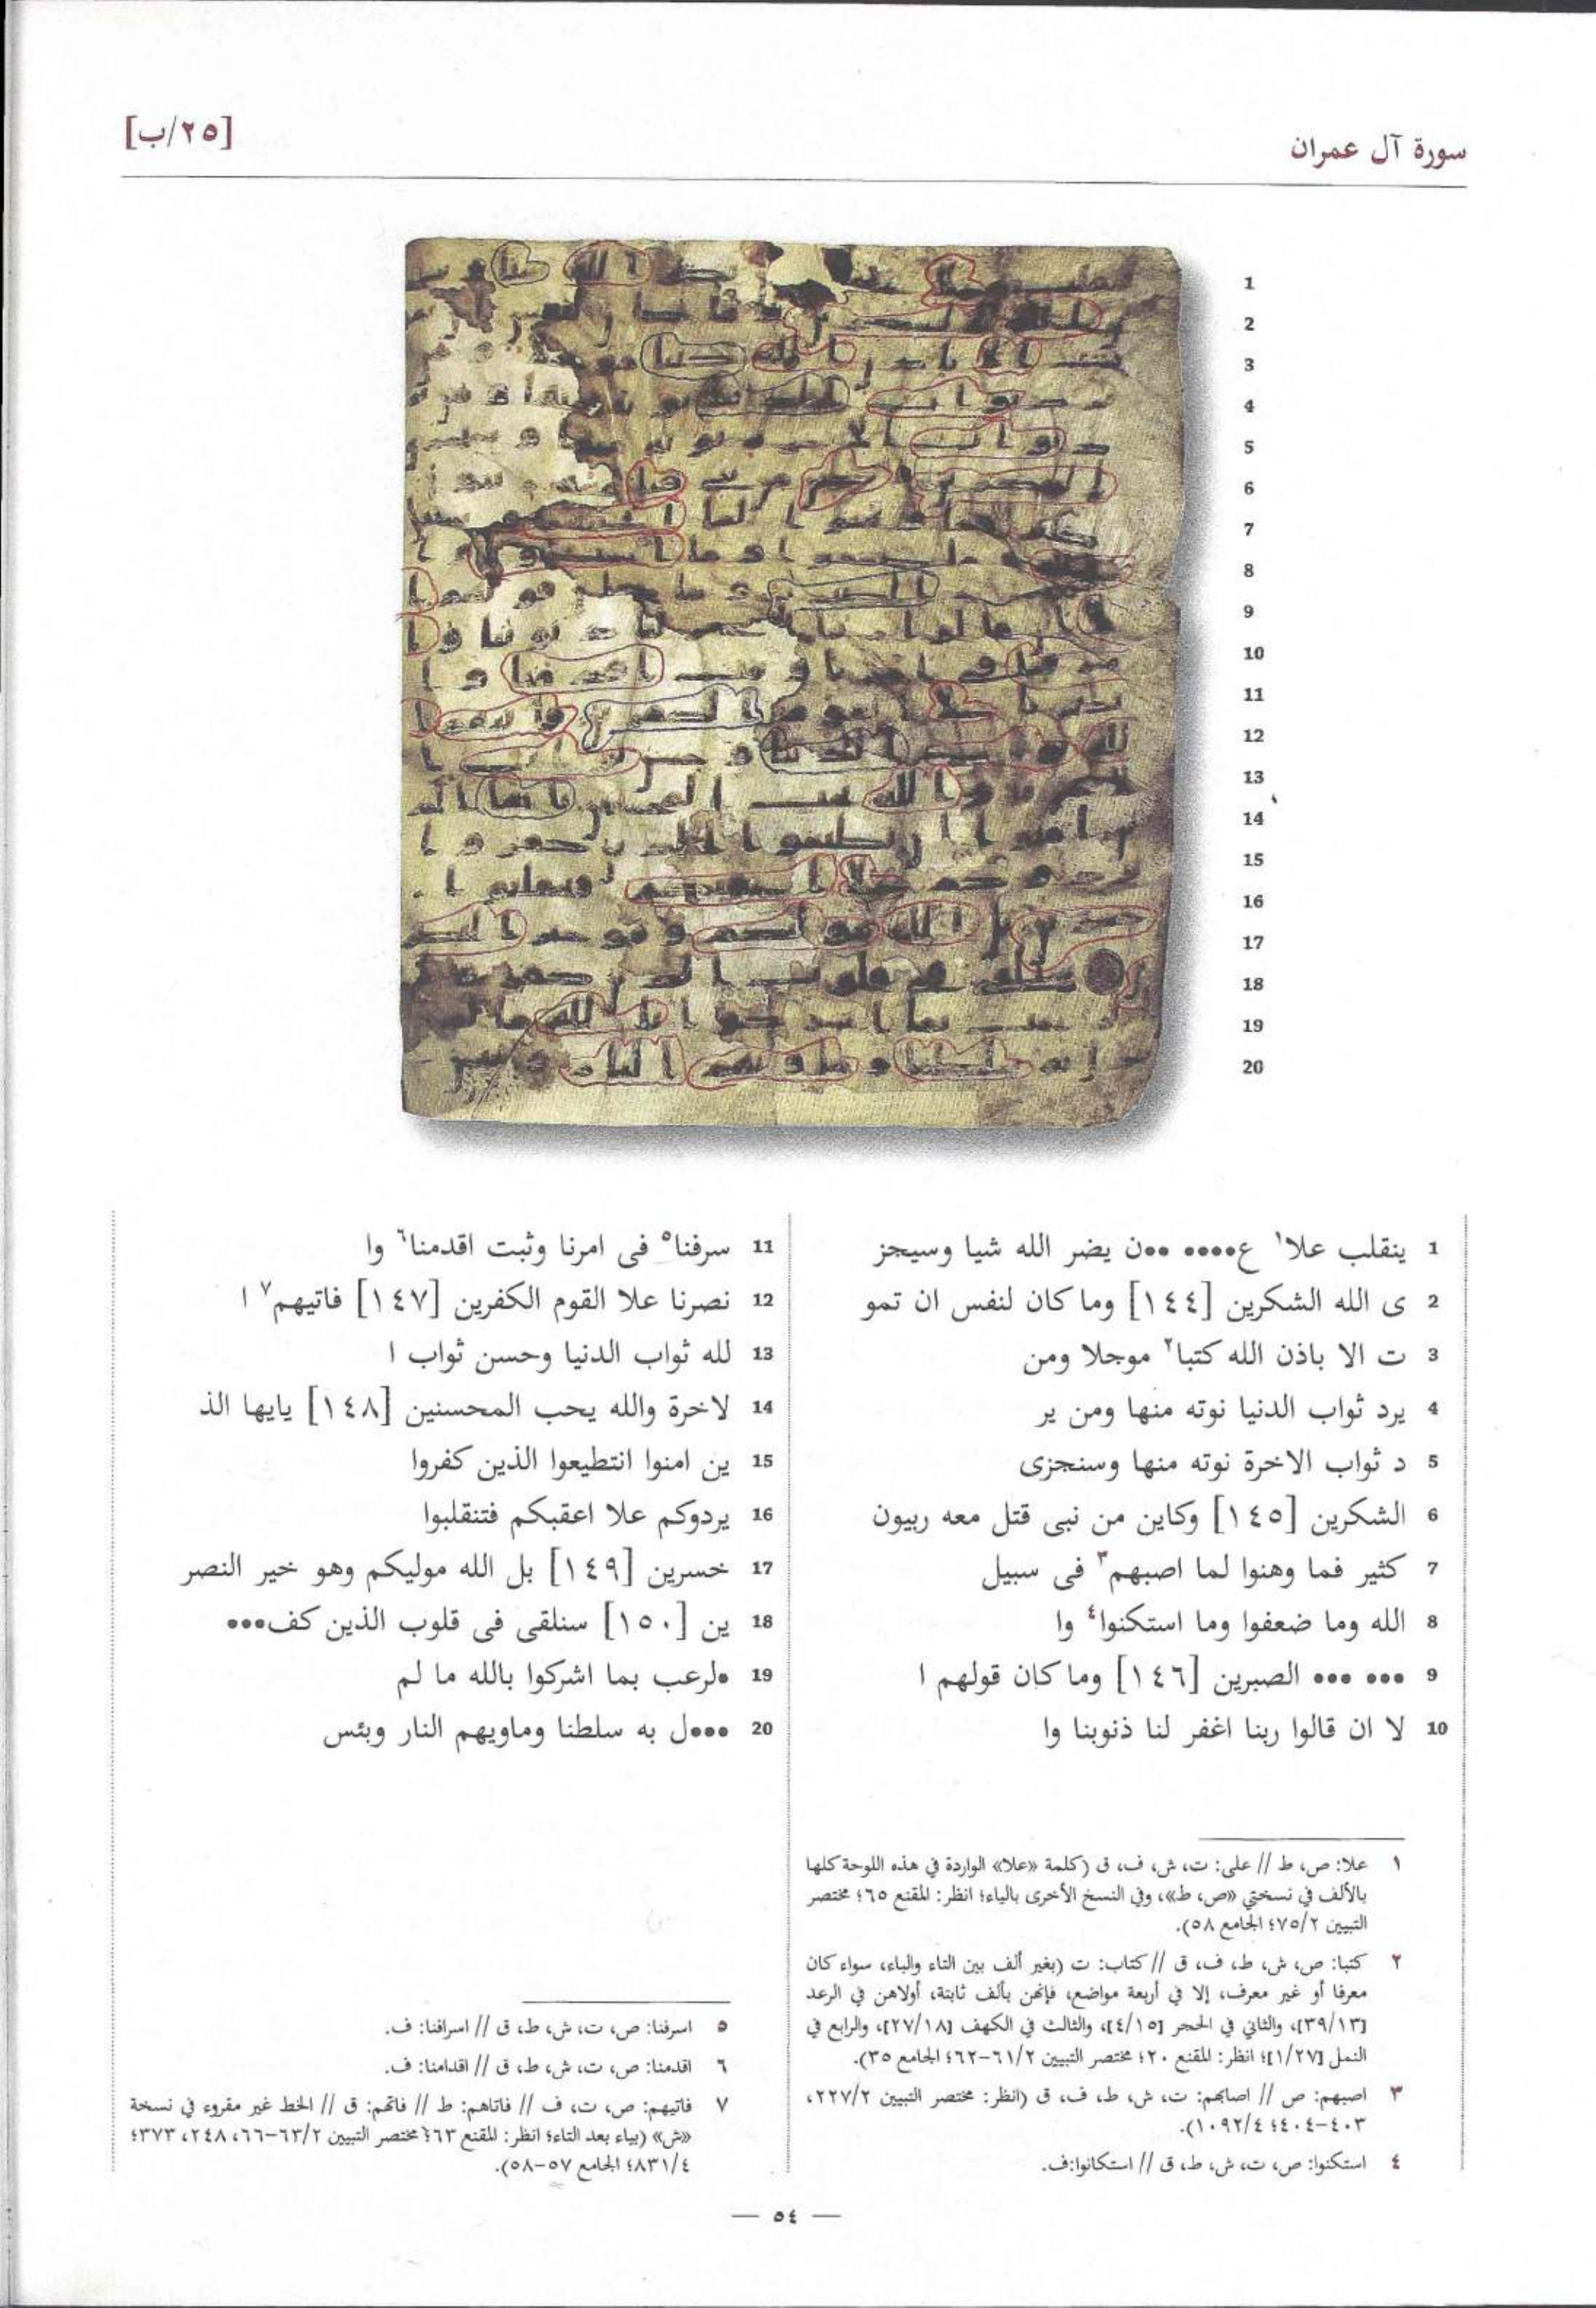 سورة آل عمران
[٢٥/ب]
1
2
3
4
5
6
7
8
9
10
11
12
13
14
15
16
17
18
19
20
1 ينقلب علا١ ع•••• ••ن يضر الله شيا وسيجز
2 ى الله الشكرين [١٤٤] وما كان لنفس ان تمو
3 ت الا باذن الله كتبا٢ موجلا ومن
4 يرد ثواب الدنيا نوته منها ومن ير
5 د ثواب الاخرة نوته منها وسنجزى
6 الشكرين [١٤٥] وكاين من نبى قتل معه ربيون
7 كثير فما وهنوا لما اصبهم٣ فى سبيل
8 الله وما ضعفوا وما استكنوا٤ وا
9 ••• ••• الصبرين [١٤٦] وما كان قولهم ا
10 لا ان قالوا ربنا اغفر لنا ذنوبنا وا
11 سرفنا٥ فى امرنا وثبت اقدمنا٦ وا
12 نصرنا علا القوم الكفرين [١٤٧] فاتيهم٧ ا
13 لله ثواب الدنيا وحسن ثواب ا
14 لاخرة والله يحب المحسنين [١٤٨] يايها الذ
15 ين امنوا انتطيعوا الذين كفروا
16 يردوكم علا اعقبكم فتنقلبوا
17 خسرين [١٤٩] بل الله موليكم وهو خير النصر
18 ين [١٥٠] سنلقى فى قلوب الذين كف•••
19 •لرعب بما اشركوا بالله ما لم
20 •••ل به سلطنا وماويهم النار وبئس
١ علا: ص، ط // على: ت، ش، ف، ق (كلمة «علا» الواردة في هذه اللوحة كلها
بالألف في نسختي «ص، ط»، وفي النسخ الأخرى بالياء؛ انظر: المقنع ٦٥؛ مختصر
التبيين ٧٥/٢؛ الجامع ٥٨).
٢ كتبا: ص، ش، ط، ف، ق // كتاب: ت (بغير ألف بين التاء والباء، سواء كان
معرفا أو غير معرف، إلا في أربعة مواضع، فإنهن بألف ثابتة، أولاهن في الرعد
[٣٩/١٣]، والثاني في الحجر [٤/١٥]، والثالث في الكهف [٢٧/١٨]، والرابع في
النمل [١/٢٧]؛ انظر: المقنع ٢٠؛ مختصر التبيين ٦١/٢-٦٢؛ الجامع ٣٥).
٣ اصبهم: ص // اصابهم: ت، ش، ط، ف، ق (انظر: مختصر التبيين ٢٢٧/٢،
٤٠٣-٤٠٤؛ ١٠٩٢/٤).
٤ استكنوا: ص، ت، ش، ط، ق // استكانوا:ف.
٥ اسرفنا: ص، ت، ش، ط، ق // اسرافنا: ف.
٦ اقدمنا: ص، ت، ش، ط، ق // اقدامنا: ف.
٧ فاتيهم: ص، ت، ف // فاتاهم: ط // فاتهم: ق // الخط غير مقروء في نسخة
«ش» (بياء بعد التاء؛ انظر: المقنع ٦٣؛ مختصر التبيين ٦٣/٢-٦٦، ٢٤٨، ٣٧٣؛
٨٣١/٤؛ الجامع ٥٧-٥٨).
— ٥٤ —